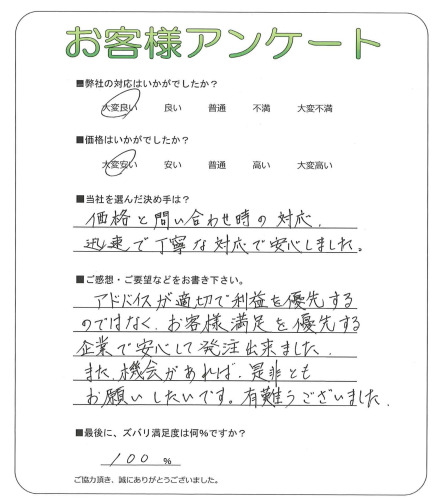 お客様アンケート
■弊社の対応はいかがでしたか？
大変良い 良い 普通 不満 大変不満
■価格はいかがでしたか？
大変安い 安い 普通 高い 大変高い
■当社を選んだ決め手は？
価格と問い合わせ時の対応.
迅速で丁寧な対応で安心しました。
■ご感想・ご要望などをお書き下さい。
アドバイスが適切で利益を優先する
のではなく、お客様満足を優先する
企業で安心して発注出来ました.
また、機会があれば、是非とも
お願いしたいです。有難うございました.
■最後に、ズバリ満足度は何%ですか？
100 %
ご協力頂き、誠にありがとうございました。